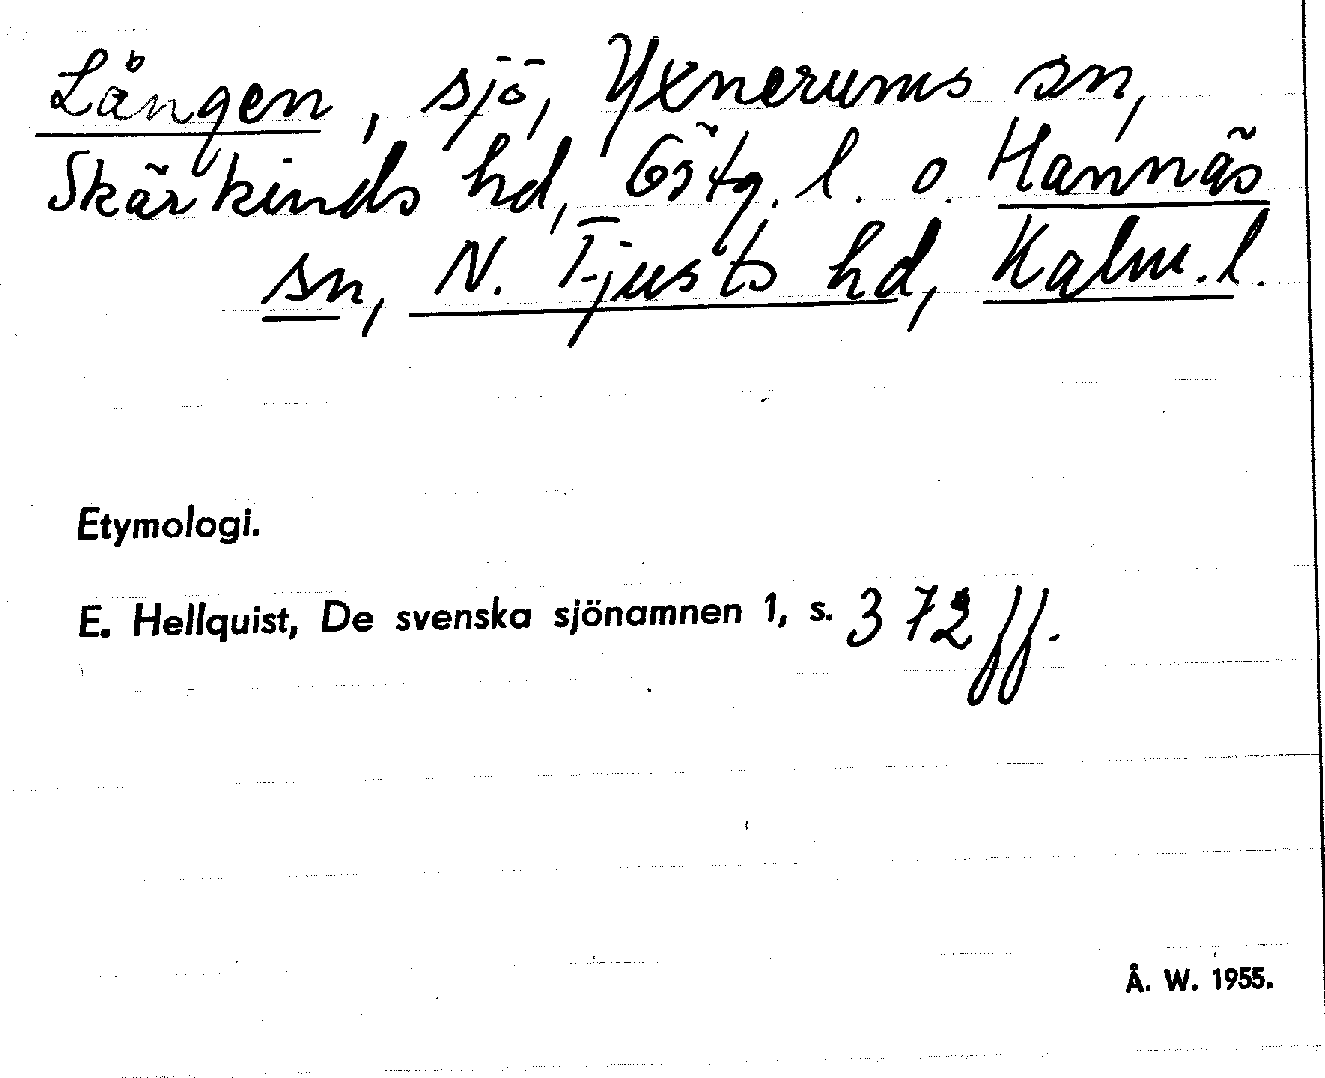 Lången, sjö, Yxnerums sn,
Skärkinds hd, Östg. l. o. Hannäs
sn, N. Tjusts hd, Kalm. l.
Etymologi.
E. Hellquist, De svenska sjönamnen 1, s. 372 ff.
Å. W. 1955.